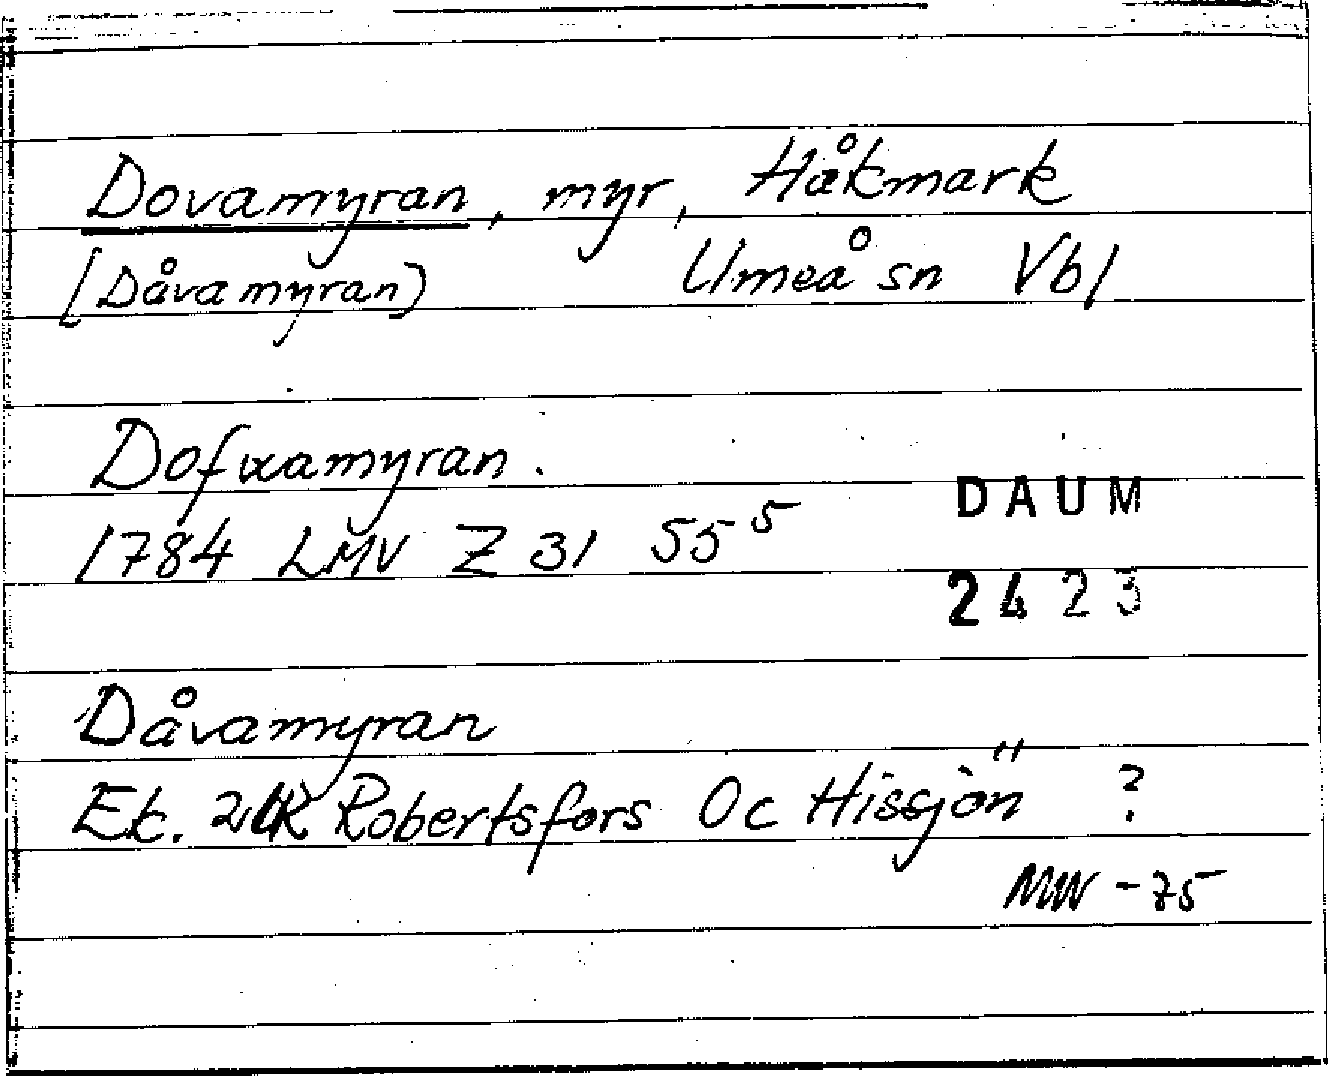 Dovamyran, myr, Håkmark
[Dåvamyran) Umeå sn Vbl
Dofwamyran.
1784 LMV Z 31 55⁵
DAUM
2423
Dåvamyran
Ek. 21K Robertsfors Oc Hissjön ?
MW -75